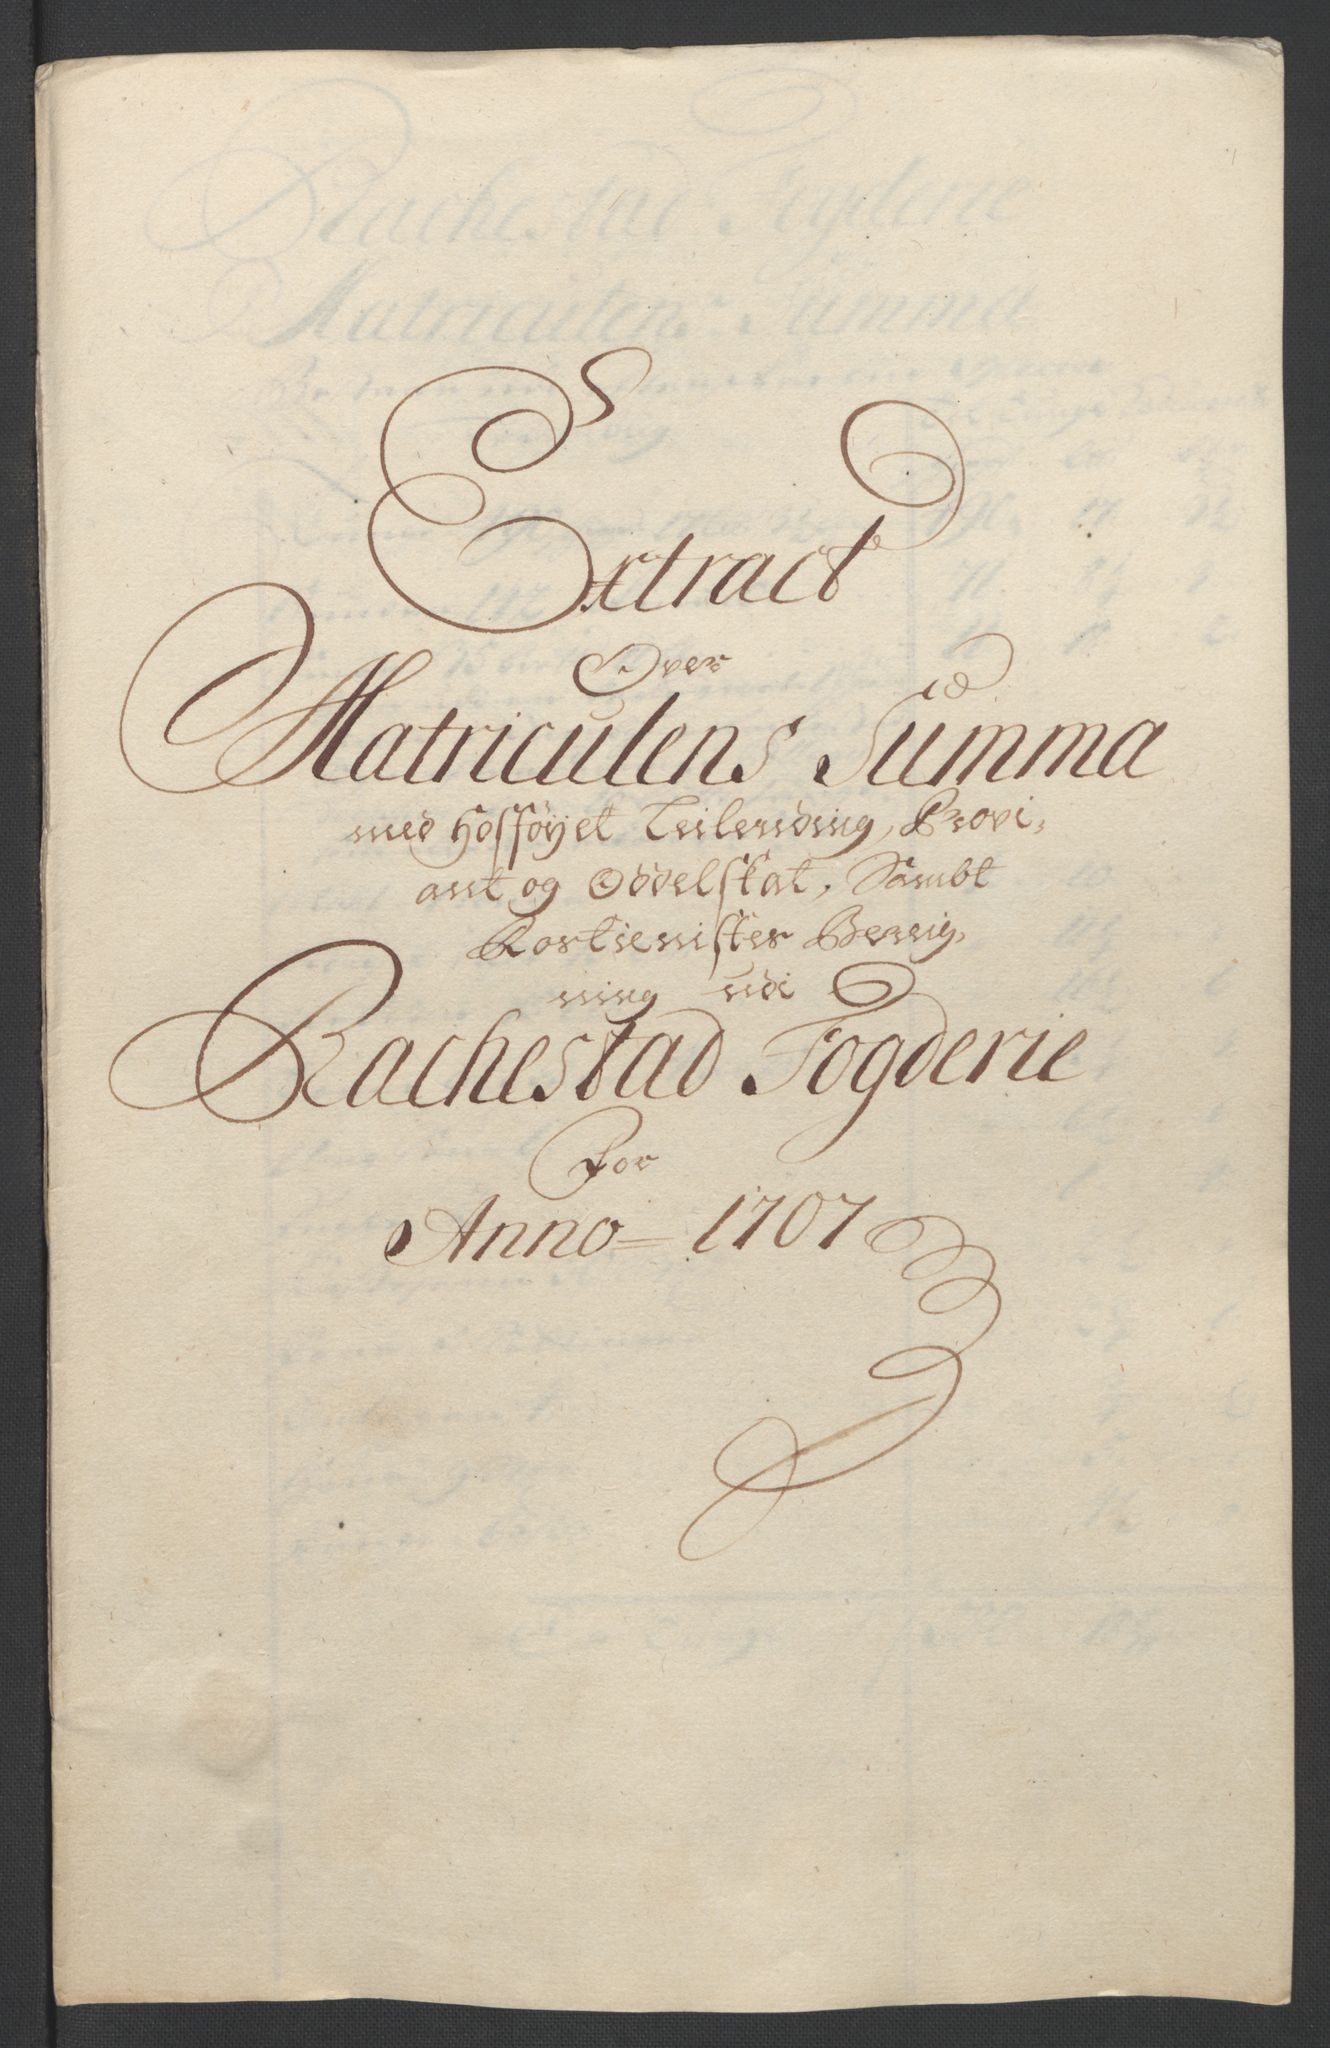 Extract
Over
Matriculens Summa
med hosføyet Leilending, Provi,
ant og Oddelskat, Sambt
Rostienistes Bereig,
ning udi
Rachestad Fogderie
For
Anno 1707